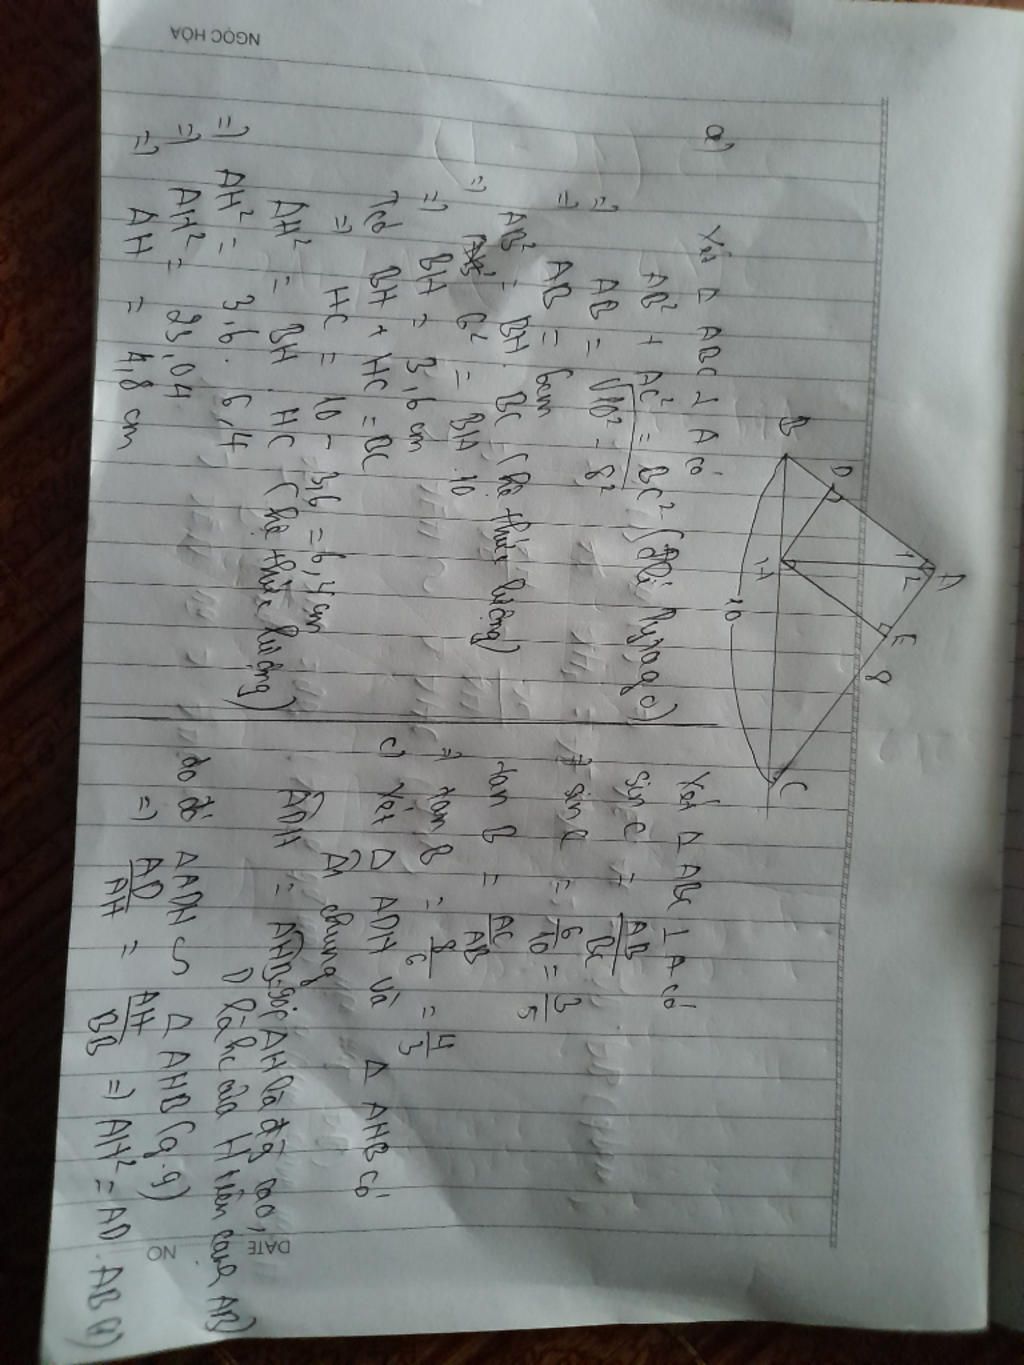 NGỌC HÒA
DATE
NO
A
1
2
D
E
8
B
H
C
10
a)
Xét Δ ABC ⊥ A có
AB² + AC² = BC² (Đlí Pytago)
=> AB = √10² - 8²
=> AB = 6cm
AB² = BH. BC (hệ thức lượng)
=> 6² = BH.10
=> BH = 3,6 cm
Ta có BH + HC = BC
=> HC = 10 - 3,6 = 6,4 cm
AH² = BH . HC (hệ thức lượng)
=> AH² = 3,6. 6,4
=> AH² = 23,04
=> AH = 4,8 cm
Xét Δ ABC ⊥ A có
sin C = AB/BC
=> sin C = 6/10 = 3/5
tan B = AC/AB
=> tan B = 8/6 = 4/3
c) Xét Δ ADH và Δ AHB có
Â1 chung
ADH = AHB (góc AH là đg cao,
D là hc của H trên cạnh AB)
do đó ΔADH ∽ Δ AHB (g.g)
=> AD/AH = AH/BB => AH² = AD . AB (1)